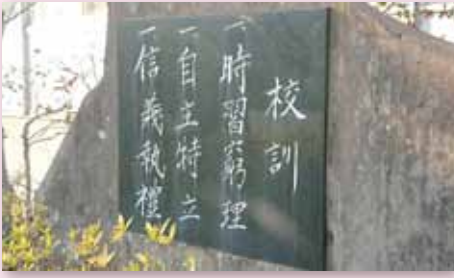 校訓
一時習窮理
一自主特立
一信義執禮